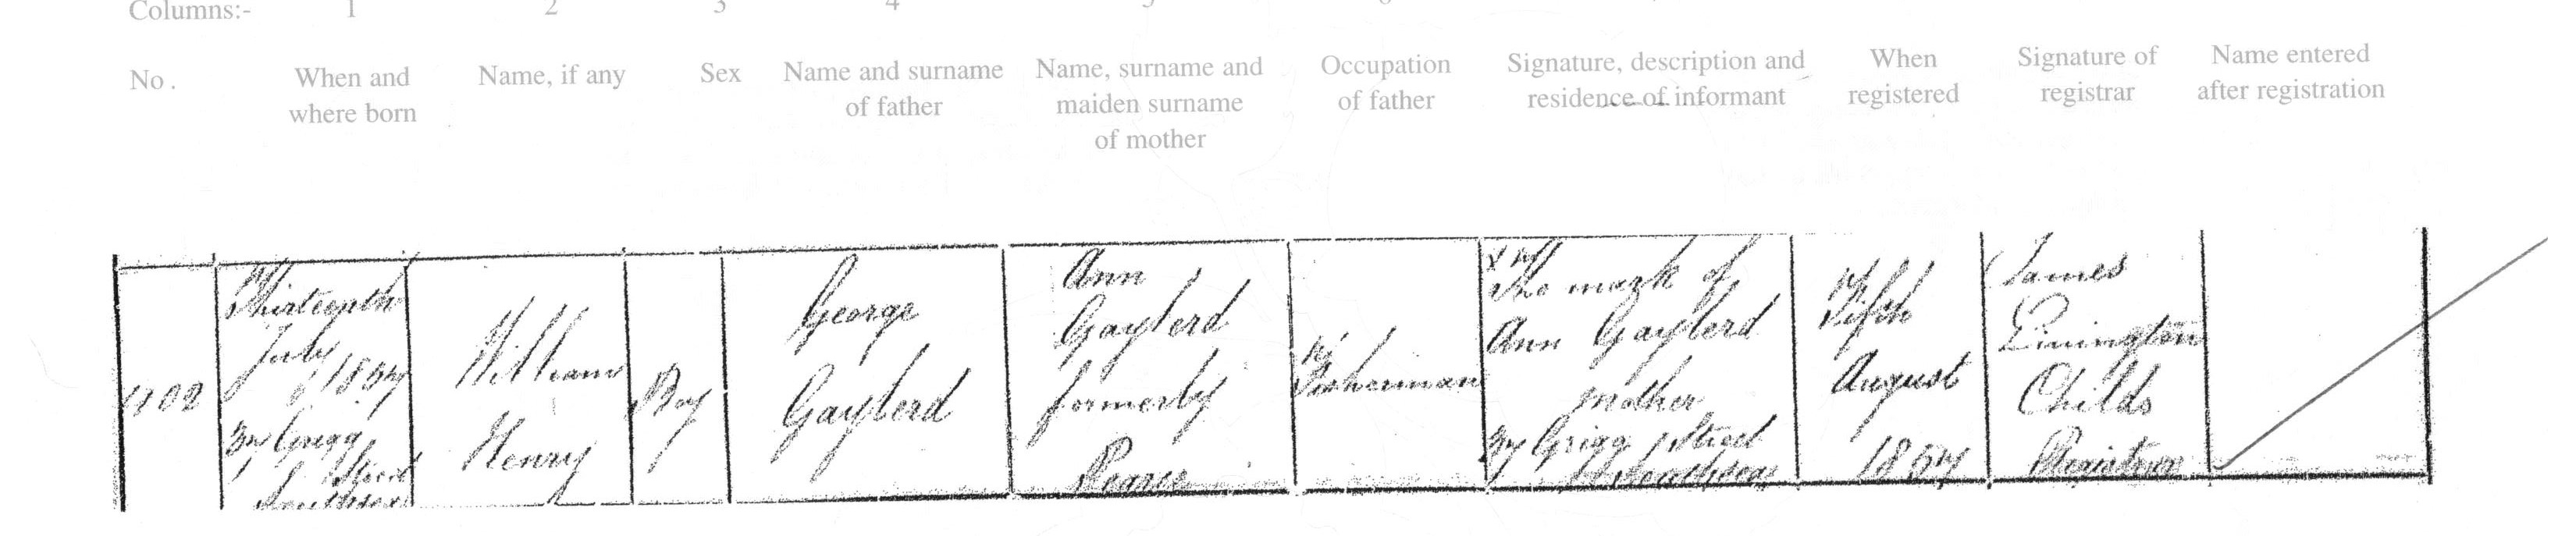 Columns:- 1 2 3 4 5 6
No. When and where born Name, if any Sex Name and surname of father Name, surname and maiden surname of mother Occupation of father Signature, description and residence of informant When registered Signature of registrar Name entered after registration
Thirteenth
July
1857
37 Grigg
Street
Southsea
William
Henry
Boy
George
Gaylerd
Ann
Gaylerd
formerly
Pearce
Fisherman
X The mark of
Ann Gaylerd
mother
37 Grigg Street
Southsea
Fifth
August
1857
James
Linington
Childs
Registrar